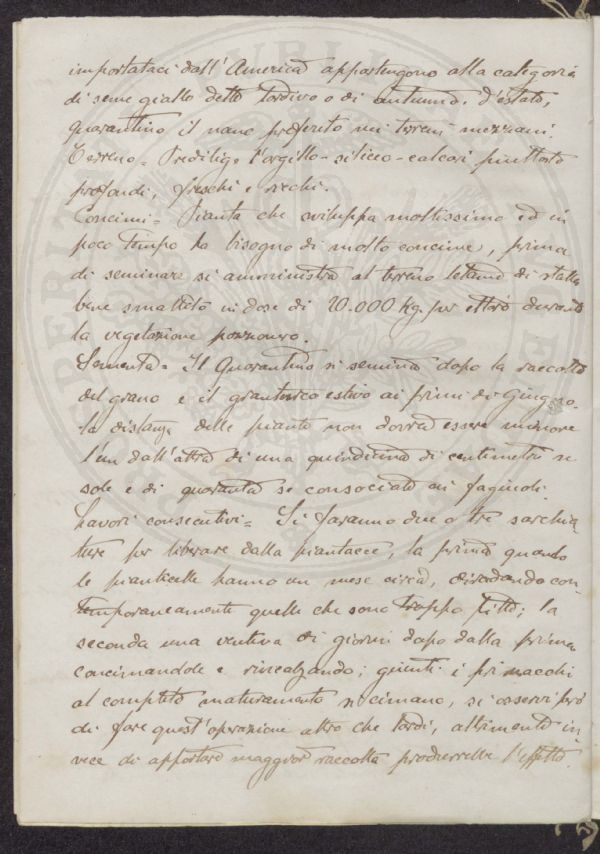 importataci dall'America appartengono alla categoria
di seme giallo detto tardivo o di autunno, d'estate,
quarantino il nano preferito nei terreni mezzani.
Terreno = Predilige l'argillo-siliceo-calcari piuttosto
profondi, freschi e ricchi.
Concimi = Pianta che sviluppa moltissimo ed in
poco tempo ha bisogno di molto concime, prima
di seminare si amministra al terreno letame di stalla
bene smaltito in dose di 20.000 Kg. per ettaro durante
la vegetazione pozzonero.
Sementa = Il Quarantino si semina dopo la raccolta
del grano e il granturco estivo ai primi di Giugno.
la distanza delle piante non dovrà essere minore
l'un dall'altra di una quindicina di centimetri se
sole e di quaranta se consociate ai fagiuoli.
Lavori consecutivi = Si faranno due o tre sarchia-
ture per liberare dalla piantacce, la prima quando
le pianticelle hanno un mese circa, diradando con-
temporaneamente quelle che sono troppo fitte; la
seconda una ventina di giorni dopo dalla prima
concimandole e rincalzando; giunti i pinacchi
al completo maturamento si cimano, si osservi però
di fare quest'operazione altro che tardi, altrimenti in-
vece di apportare maggior raccolta produrrebbe l'effetto